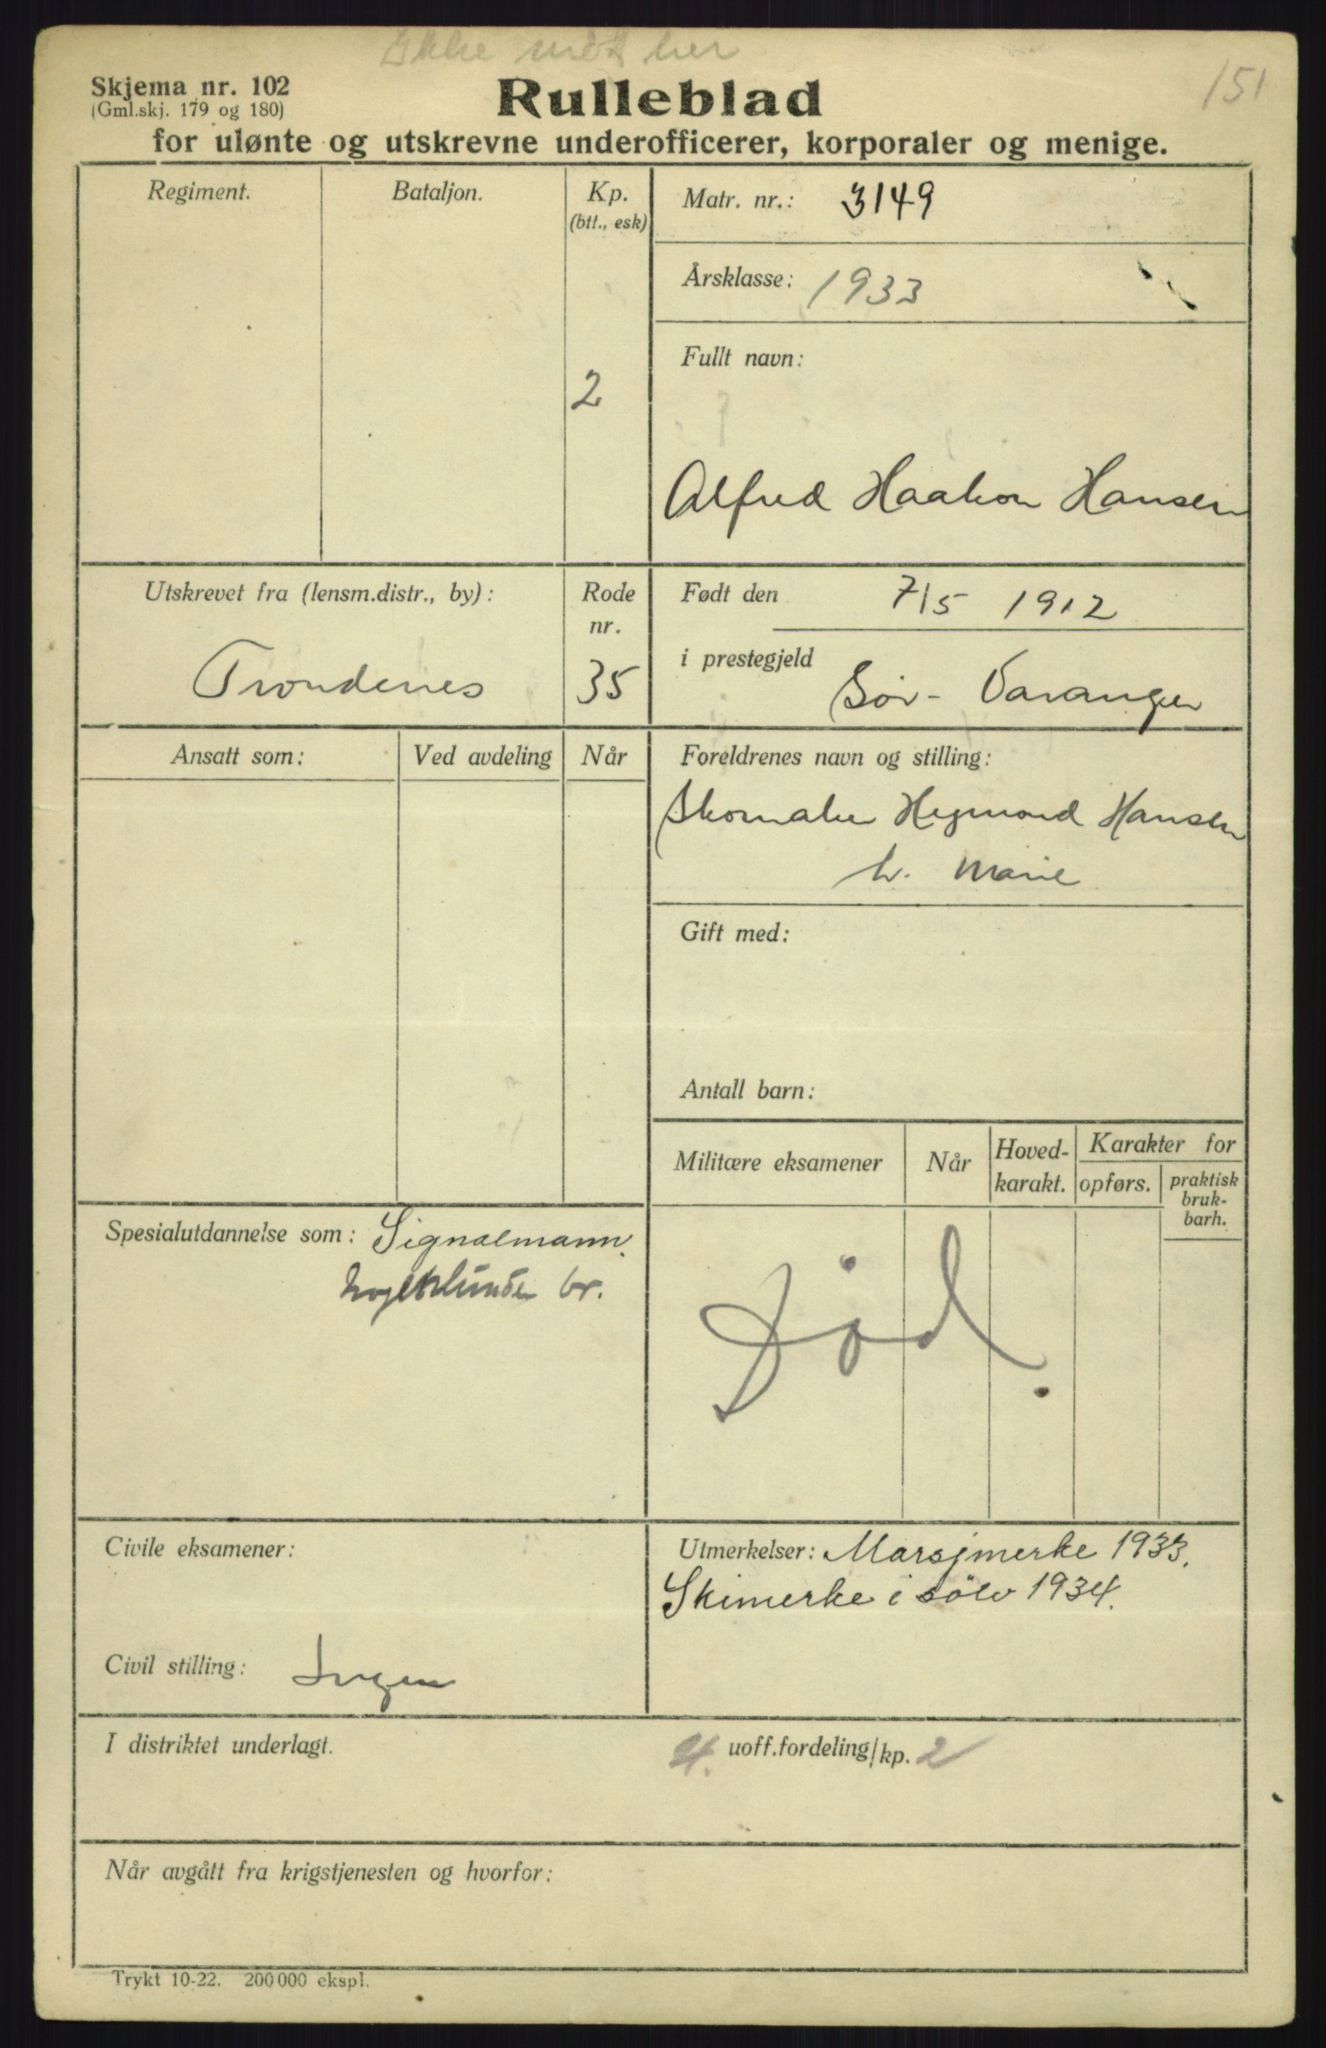 Ikke møtt her
151
Skjema nr. 102
(Gml.skj. 179 og 180)
Rulleblad
for ulønte og utskrevne underofficerer, korporaler og menige.
Regiment.
Bataljon.
Kp.
(btt., esk)
2
Matr. nr.: 3149
Årsklasse: 1933
Fullt navn:
Alfred Haakon Hansen
Utskrevet fra (lensm.distr., by):
Trondenes
Rode
nr.
35
Født den 7/5 1912
i prestegjeld
Sør-Varanger
Ansatt som:
Ved avdeling
Når
Foreldrenes navn og stilling:
Skomaker Hegmond Hansen
h. Marie
Gift med:
Antall barn:
Militære eksamener
Når
Hoved-
karakt.
Karakter for
opførs.
praktisk
bruk-
barh.
Død.
Spesialutdannelse som: Signalmann.
br.
Civile eksamener:
Civil stilling: Ingen
Utmerkelser: Marsjmerke 1933.
Skimerke i sölv 1934.
I distriktet underlagt.
4. uoff.fordeling/kp. 2
Når avgått fra krigstjenesten og hvorfor:
Trykt 10-22. 200 000 ekspl.